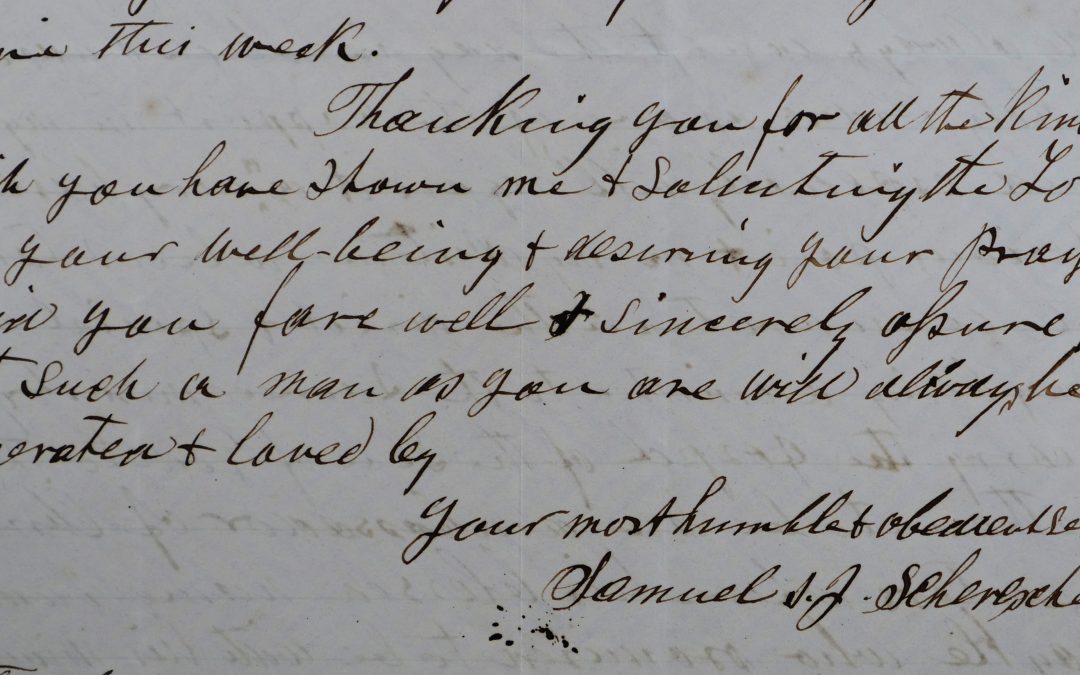 this week.
Thanking you for all the Kin
you have shown me & Soliciting the Lo
your well-being & desiring your pray
you farewell & sincerely assure
such a man as you are will always be
erated & loved by
your most humble & obedient se
Samuel I. J. Scheresche